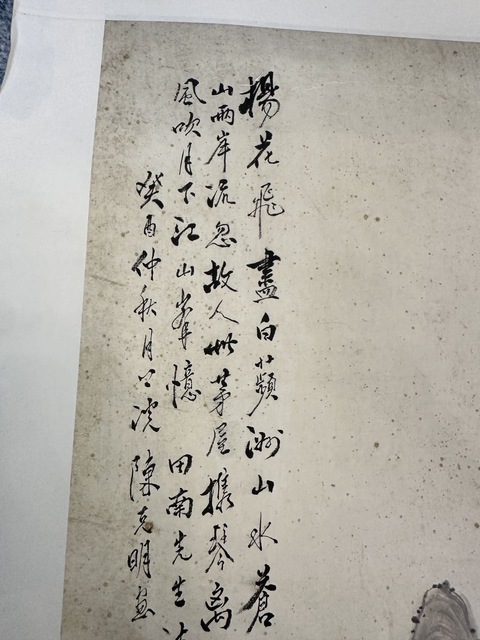 楊花飛盡白蘋洲山水蒼
山兩岸流忽故人共茅屋攜琴离
風吹月下江山峯憶 田南先生
癸酉仲秋月 陳克明畫